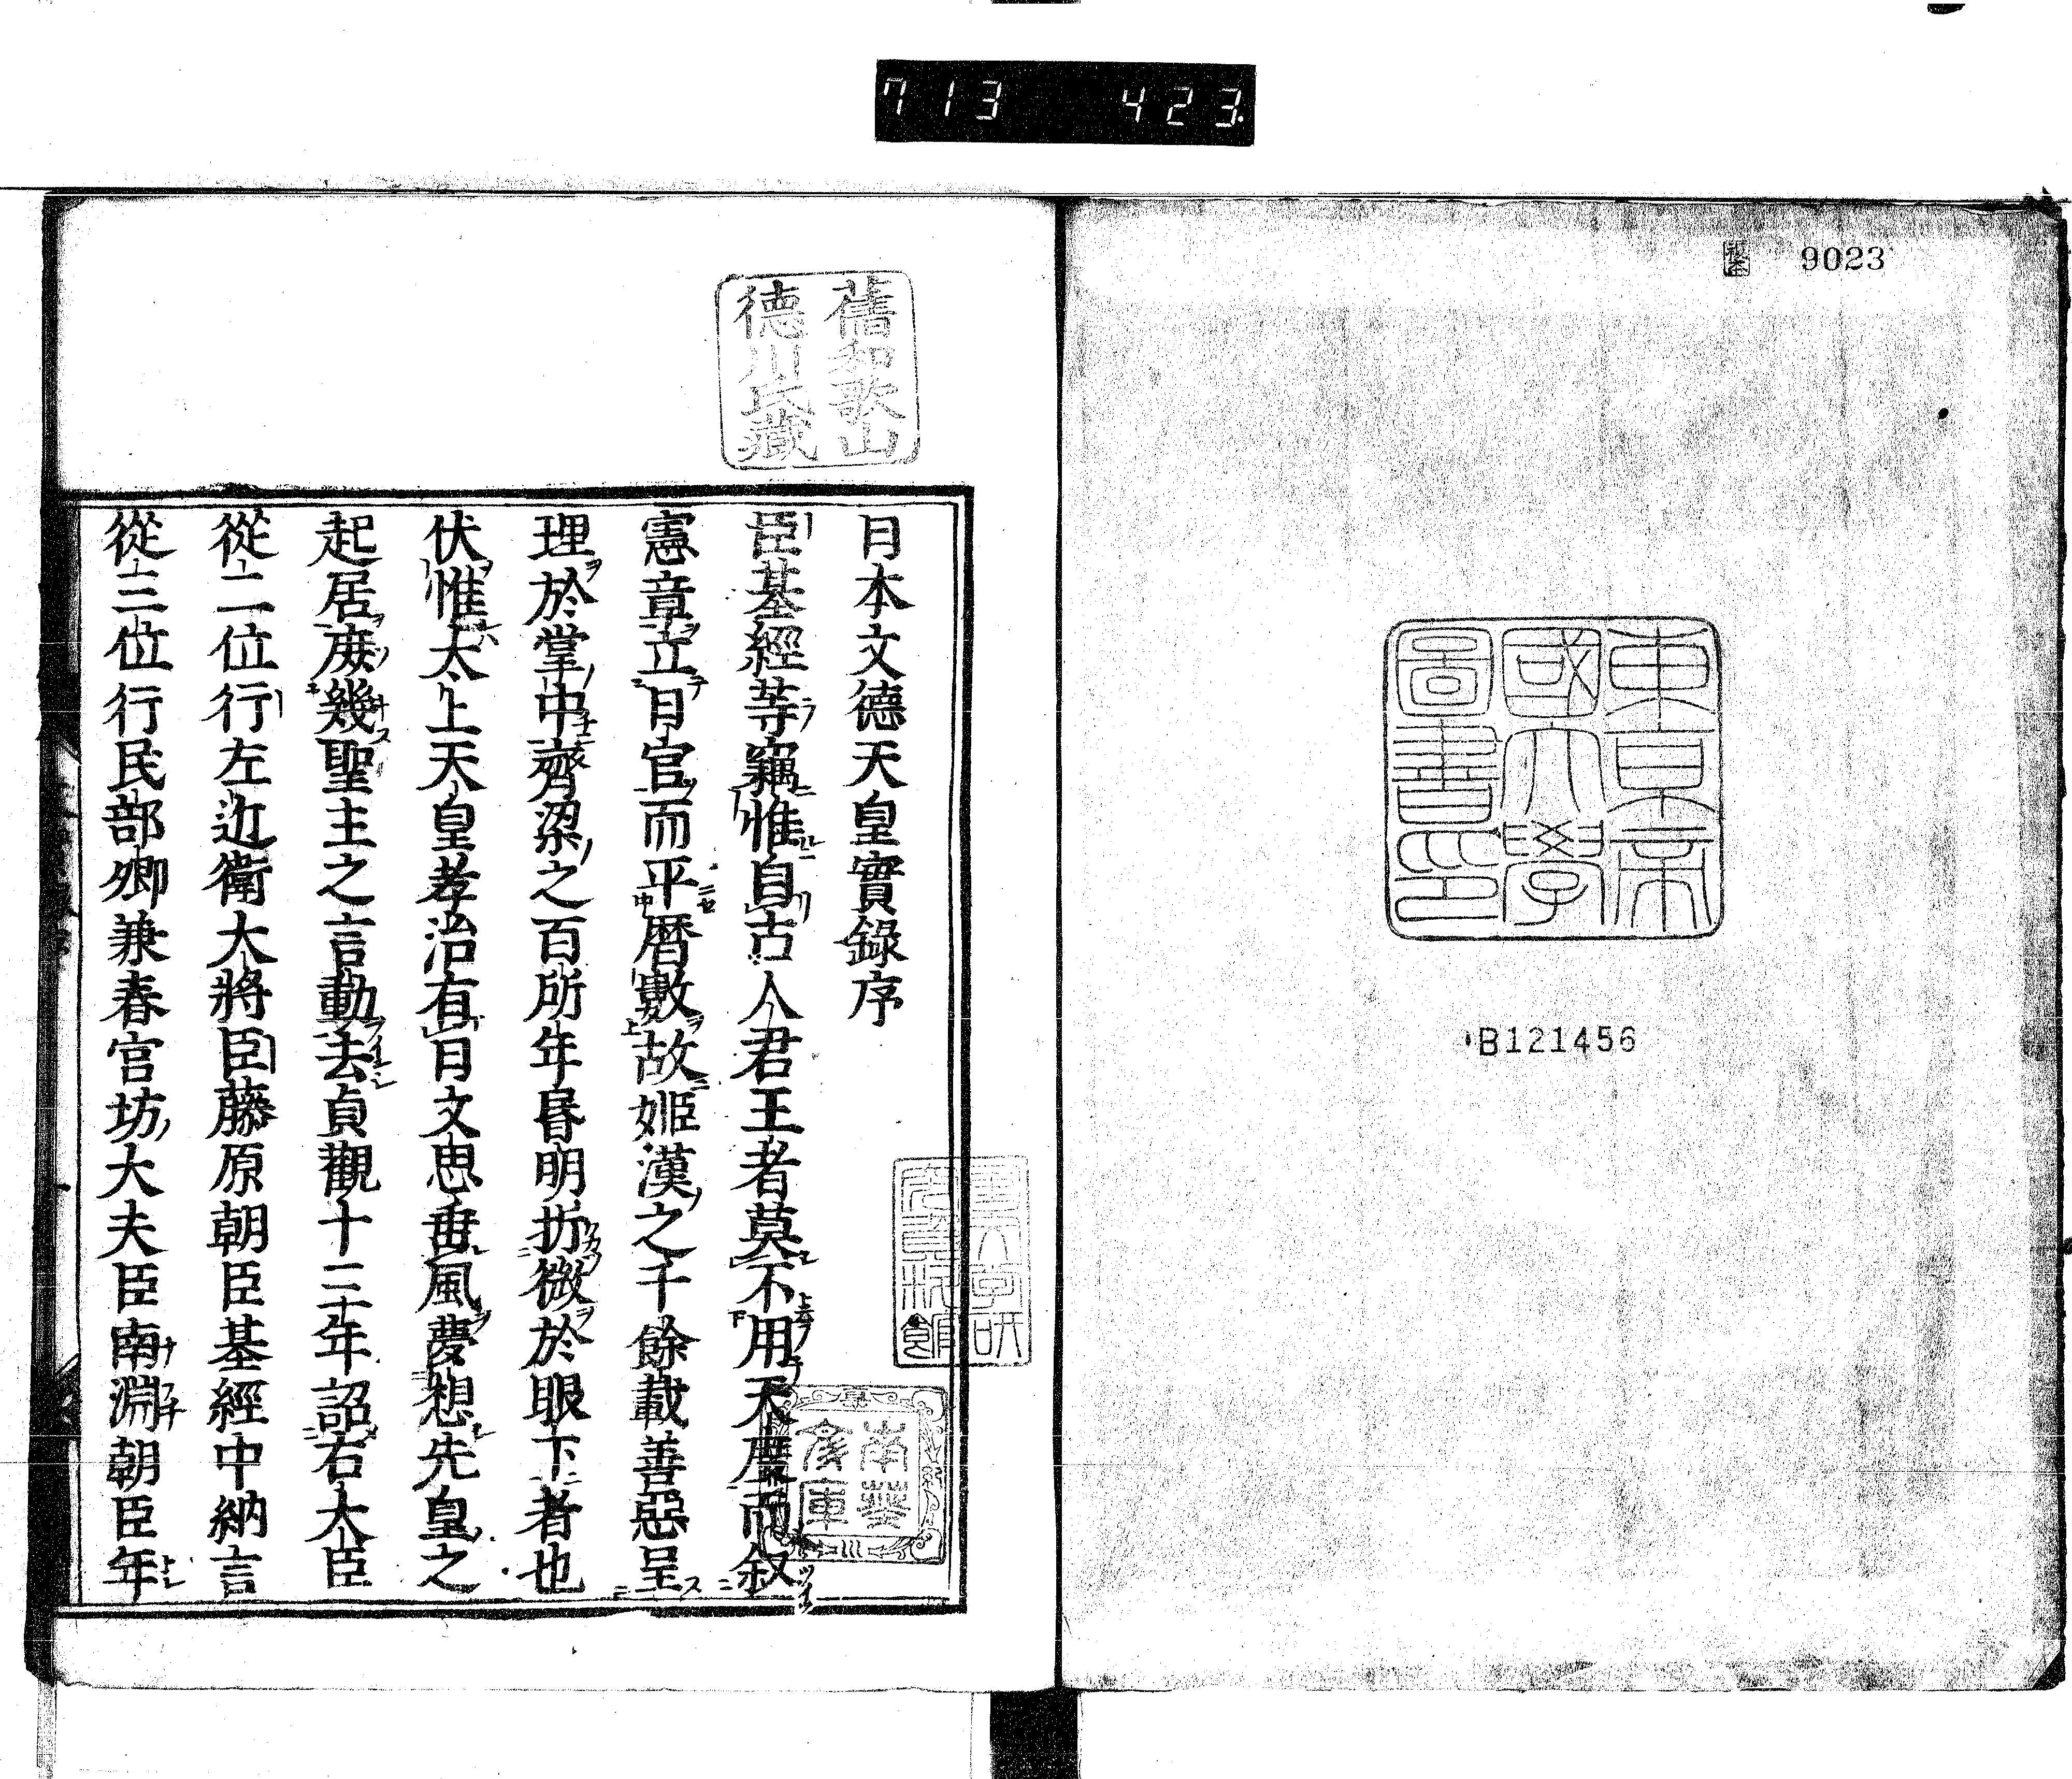 713 423.
9023
東京帝
國大學
圖書印
B121456
舊和歌山
德川氏藏
南葵
文庫
日本文德天皇實錄序
臣基經等竊惟自古人君王者莫不用天曆而叙
憲章立日官而平曆數故姬漢之千餘載善惡呈
理於掌中齊梁之百所年昬明折微於眼下者也
伏惟太上天皇孝治有日文思垂風夢想先皇之
起居庶幾聖主之言動去貞觀十三年詔右大臣
從二位行左近衛大將臣藤原朝臣基經中納言
從三位行民部卿兼春宮坊大夫臣南淵朝臣年